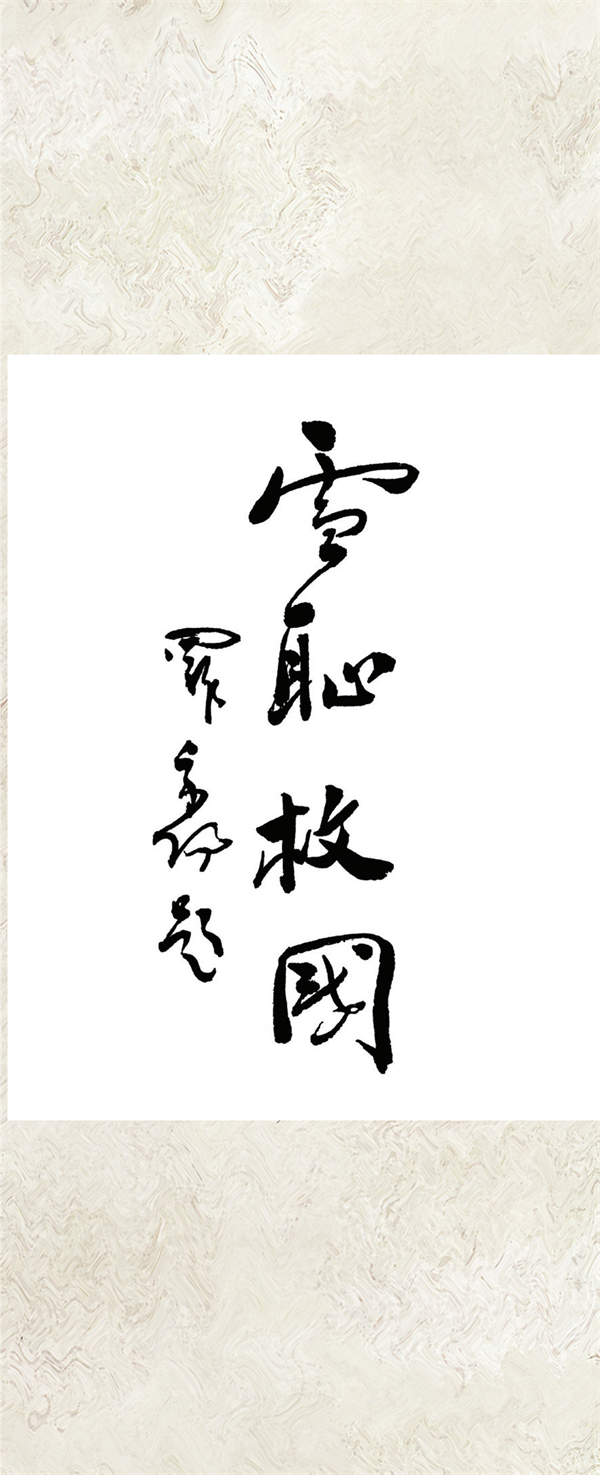 雪恥救國
羅家倫題